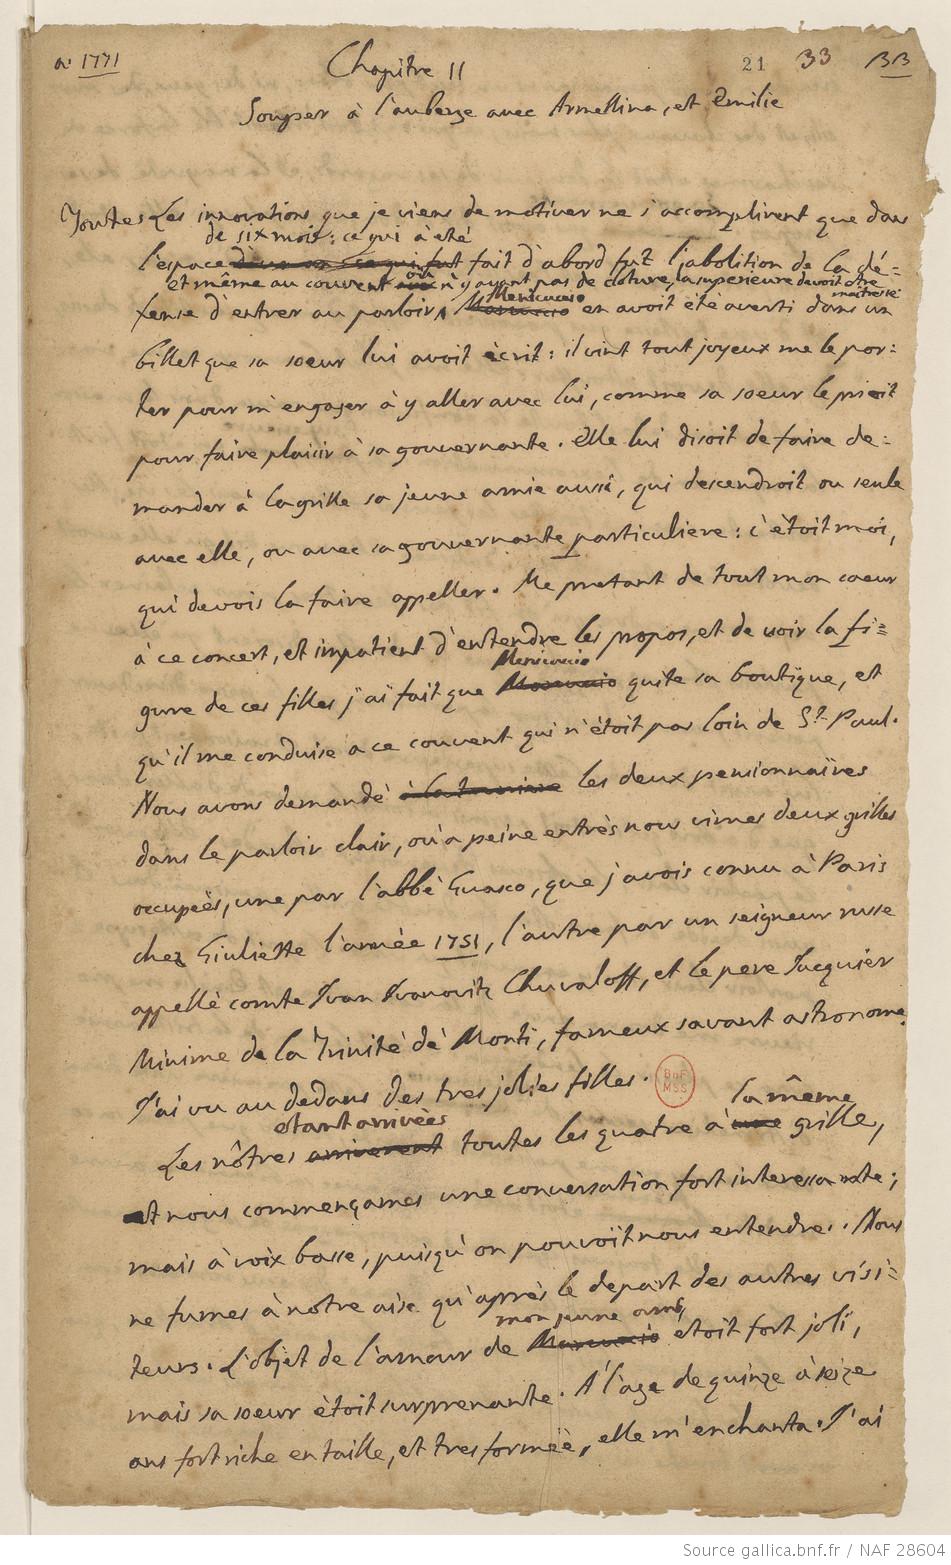 a: 1771
Chapitre II
21 33 BB
Souper à l'auberge avec Armelline, et Emilie
Toutes Les innovations que je viens de motiver ne s'accomplirent que dans
de six mois: ce qui à eté
l'espace fait d'abord fut l'abolition de la dé=
et même au couvent où n'y ayant pas de cloture, la superieure devoit être
maitresse
fense d'entrer au parloir, Menicuccio en avoit été averti dans un
billet que sa soeur lui avoit écrit: il vint tout joyeux me le por=
ter pour m'engager à y aller avec lui, comme sa soeur le prioit
pour faire plaisir à sa gouvernante. Elle lui disoit de faire de=
mander à la grille sa jeune amie aussi, qui descendroit ou seule
avec elle, ou avec sa gouvernante particuliere: c'étoit moi,
qui devois la faire appeller. Me pretant de tout mon coeur
à ce concert, et impatient d'entendre les propos, et de voir la fi=
Menicuccio
gure de ces filles j'ai fait que quite sa boutique, et
qu'il me conduise a ce couvent qui n'étoit pas loin de St. Paul.
Nous avons demandé les deux pensionnaires
dans le parloir clair, où a peine entrès nous vimes deux grilles
occupeés, une par l'abbé Guasco, que j'avois connu à Paris
chez Giuliette l'année 1751, l'autre par un seigneur russe
appellé comte Ivan Ivanovitz Chuvaloff, et le pere Jacquier
Minime de la Trinité dé Monti, fameux savant astronome.
J'ai vu au dedans des tres jolies filles.
BnF
MSS
etant arrivées
la même
Les nôtres toutes les quatre à grille,
nous commençames une conversation fort interessante;
mais à voix basse, puisqu'on pouvoit nous entendre. Nous
ne fumes à nôtre aise qu'après le depart des autres visi=
mon jeune ami
teurs. L'objet de l'amour de etoit fort joli,
mais sa soeur étoit surprenante. A l'age de quinze à seize
ans fort riche en taille, et tres formée, elle m'enchanta. J'ai
Source gallica.bnf.fr / NAF 28604